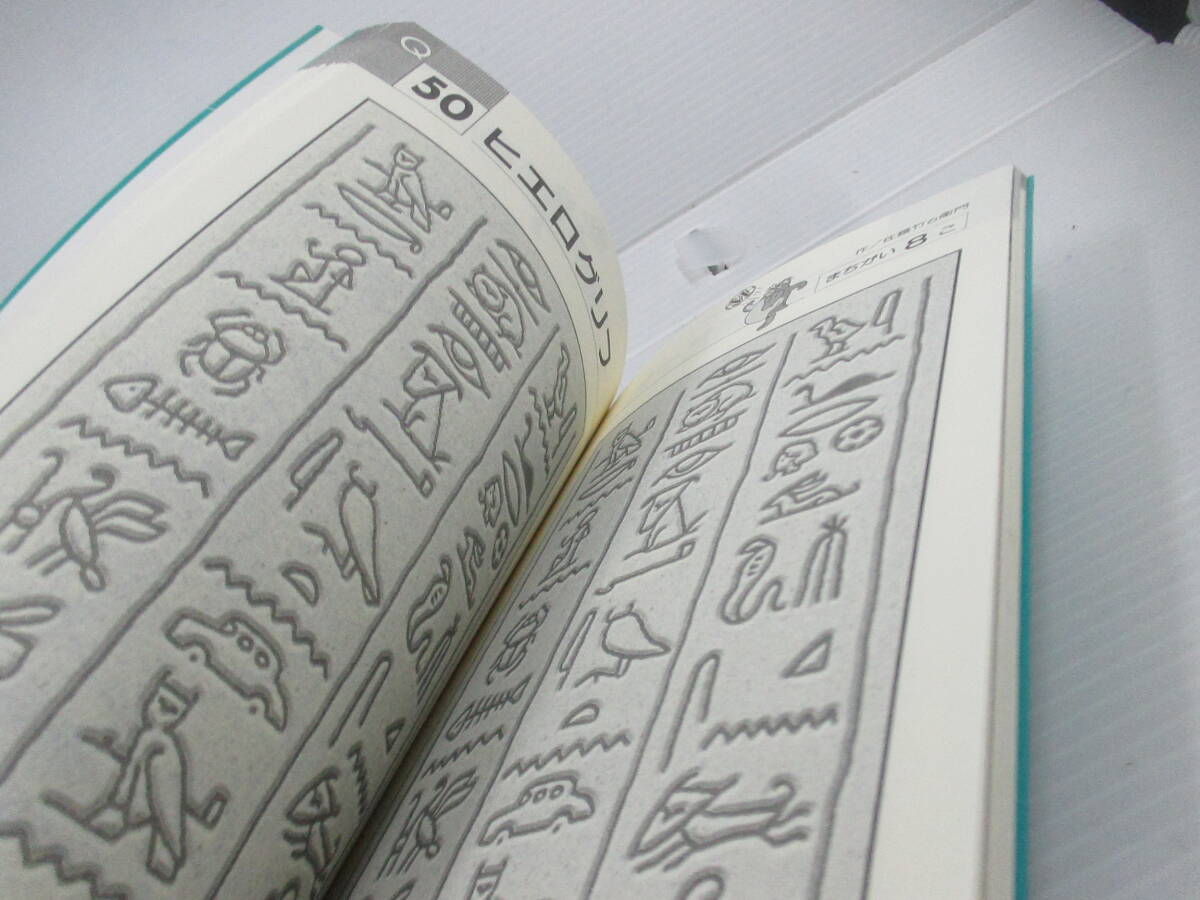 Q
50
ヒエログリフ
作/佐藤竹右衛門
まちがい8こ